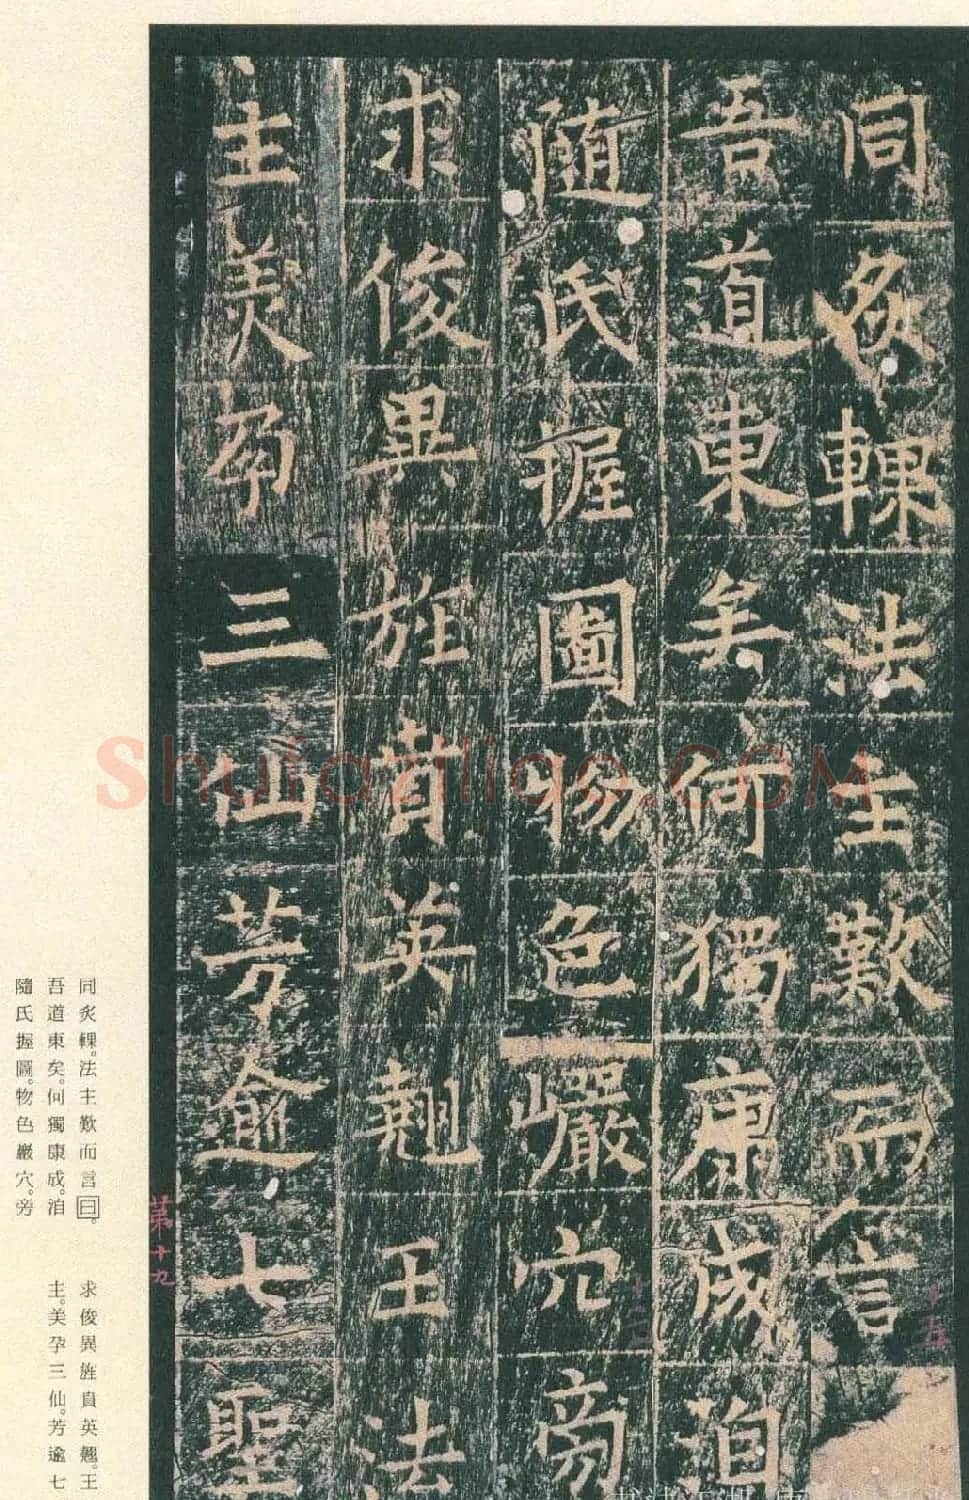 同炙輠法主歎而言
吾道東矣何獨康成洎
隨氏握圖物色巖穴旁
求俊異旌賁英翹王法
主美孕三仙芳逾七聖
同炙輠。法主歎而言曰。
吾道東矣。何獨康成。洎
隨氏握圖。物色巖穴。旁
求俊異旌賁英翹。王
主。美孕三仙。芳逾七
第十九
十二
十五
Shufaziliao.COM